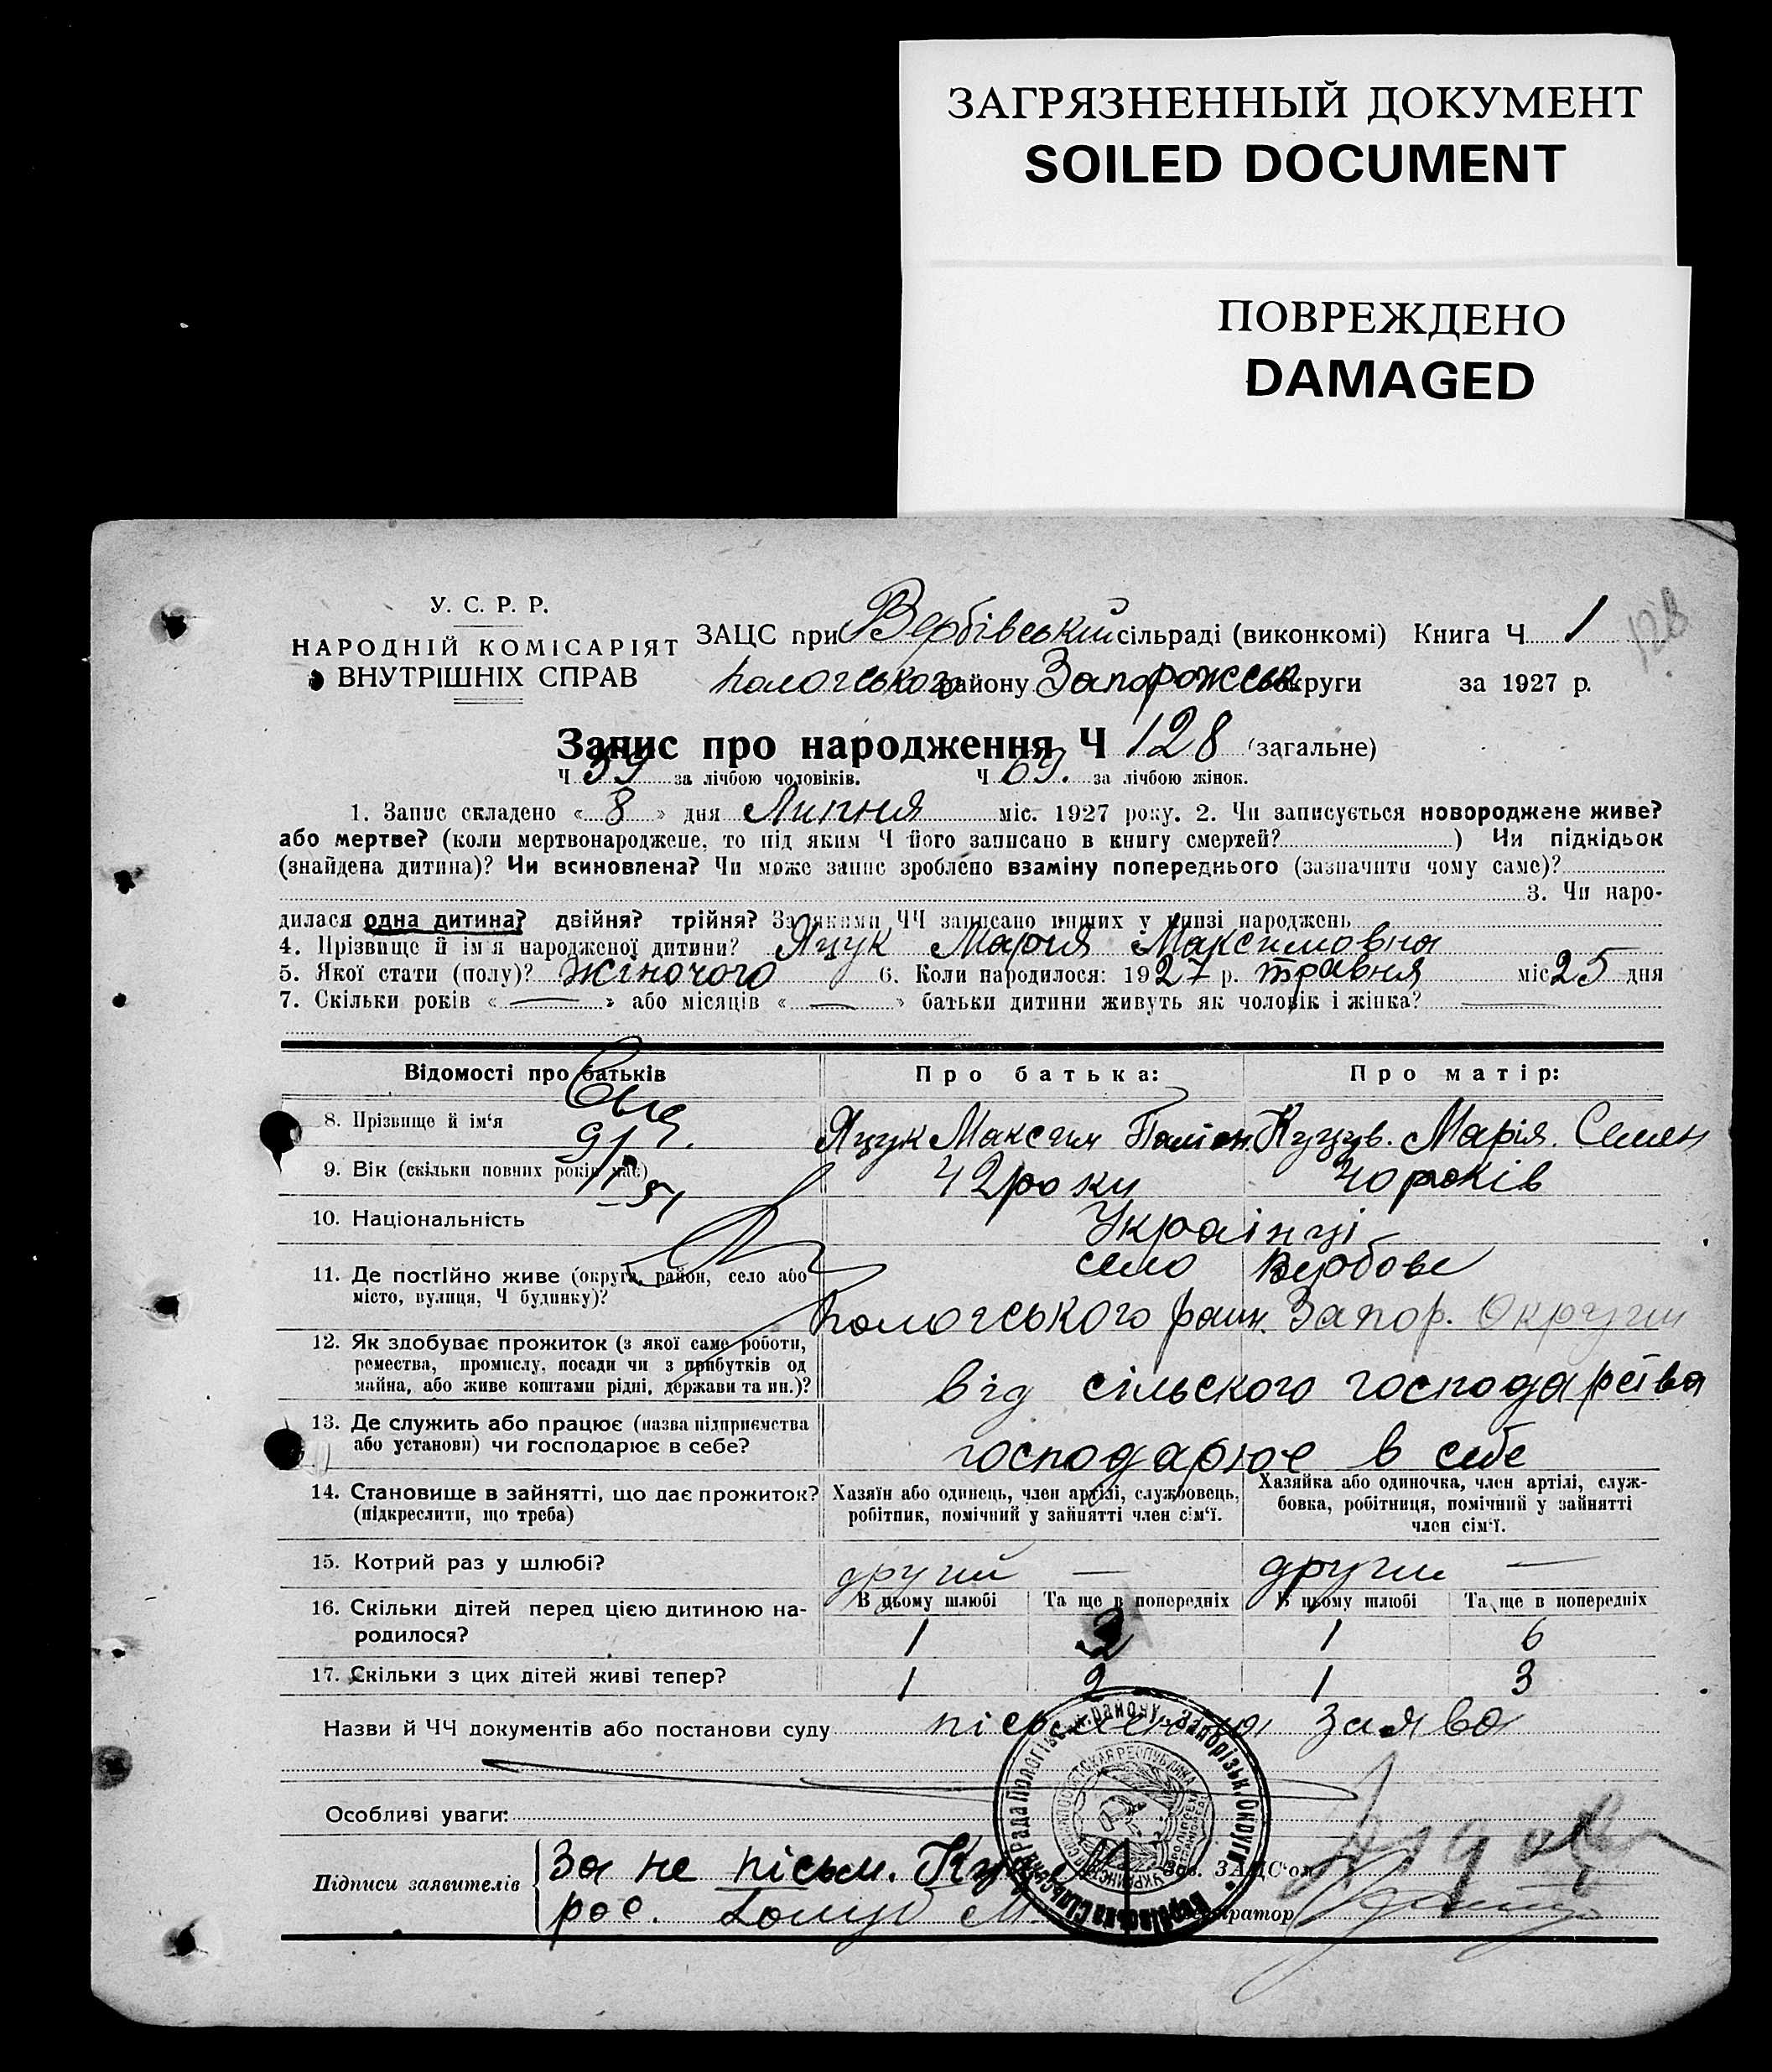 ЗАГРЯЗНЕННЫЙ ДОКУМЕНТ
SOILED DOCUMENT
ПОВРЕЖДЕНО
DAMAGED
128
У. С. Р. Р.
НАРОДНІЙ КОМІСАРІЯТ
ВНУТРІШНІХ СПРАВ
ЗАЦС при Вербівській сільраді (виконкомі) Книга Ч 1
Пологського району Запорожськ округи за 1927 р.
Запис про народження Ч 128 (загальне)
Ч 59 за лічбою чоловіків. Ч 69. за лічбою жінок.
1. Запис складено « 8 » дня Липня міс. 1927 року. 2. Чи записується новороджене живе?
або мертве? (коли мертвонароджене, то під яким Ч його записано в книгу смертей? ) Чи підкідьок
(знайдена дитина)? Чи всиновлена? Чи може запис зроблено взаміну попереднього (зазначити чому саме)?
3. Чи наро-
дилася одна дитина? двійня? трійня? За якими ЧЧ записано инших у книзі народжень
4. Прізвище й ім'я народженої дитини? Яцук Мария Максимовна
5. Якої стати (полу)? жіночого 6. Коли народилося: 1927 р. травня міс 25 дня
7. Скільки років « — » або місяців « — » батьки дитини живуть як чоловік і жінка? —
Відомості про батьків Про батька: Про матір:
8. Прізвище й ім'я Яцук Максим Марія. Семен
9. Вік (скільки повних років має) 42 роки 40 років
10. Національність Українці
11. Де постійно живе (округа, район, село або село Вербове
місто, вулиця, Ч будинку)? Пологського райн. Запор. Округи
12. Як здобуває прожиток (з якої саме роботи,
ремества, промислу, посади чи з прибутків од
майна, або живе коштами рідні, держави та ин.)? від сільского господарства
13. Де служить або працює (назва підприємства
або установи) чи господарює в себе? господарює в себе
14. Становище в зайнятті, що дає прожиток? Хазяїн або одинець, член артілі, службовець, Хазяйка або одиночка, член артілі, служ-
(підкреслити, що треба) робітник, помічний у зайнятті член сім'ї. бовка, робітниця, помічний у зайнятті
член сім'ї.
15. Котрий раз у шлюбі? другий — другий —
16. Скільки дітей перед цією дитиною на- В цьому шлюбі Та ще в попередніх В цьому шлюбі Та ще в попередніх
родилося? 1 2 1 6
17. Скільки з цих дітей живі тепер? 1 2 1 3
Назви й ЧЧ документів або постанови суду пісьменна заява
Особливі уваги:
Підписи заявителів За не пісьм. Зав. ЗАЦС'ом
рос. М.